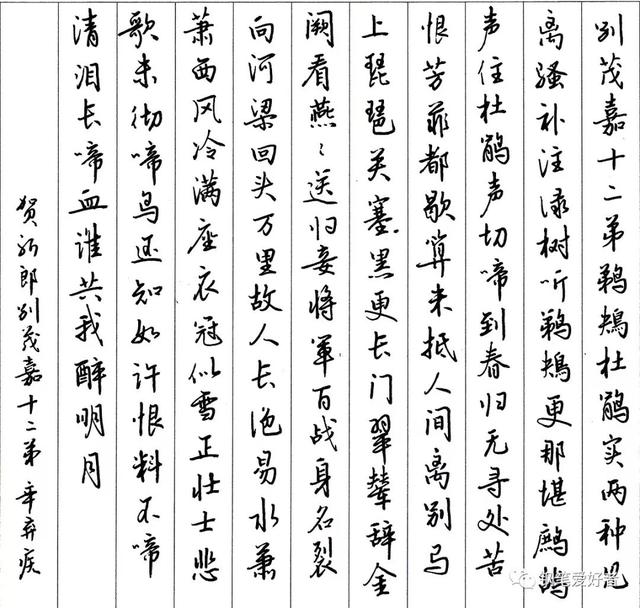 别茂嘉十二弟鹈鴂杜鹃实两种见
离骚补注绿树听鹈鴂更那堪鹧鸪
声住杜鹃声切啼到春归无寻处苦
恨芳菲都歇算未抵人间离别马
上琵琶关塞黑更长门翠辇辞金
阙看燕〻送归妾将军百战身名裂
向河梁回头万里故人长绝易水萧
萧西风冷满座衣冠似雪正壮士悲
歌未彻啼鸟还知如许恨料不啼
清泪长啼血谁共我醉明月
贺新郎别茂嘉十二弟 辛弃疾
钢笔爱好者